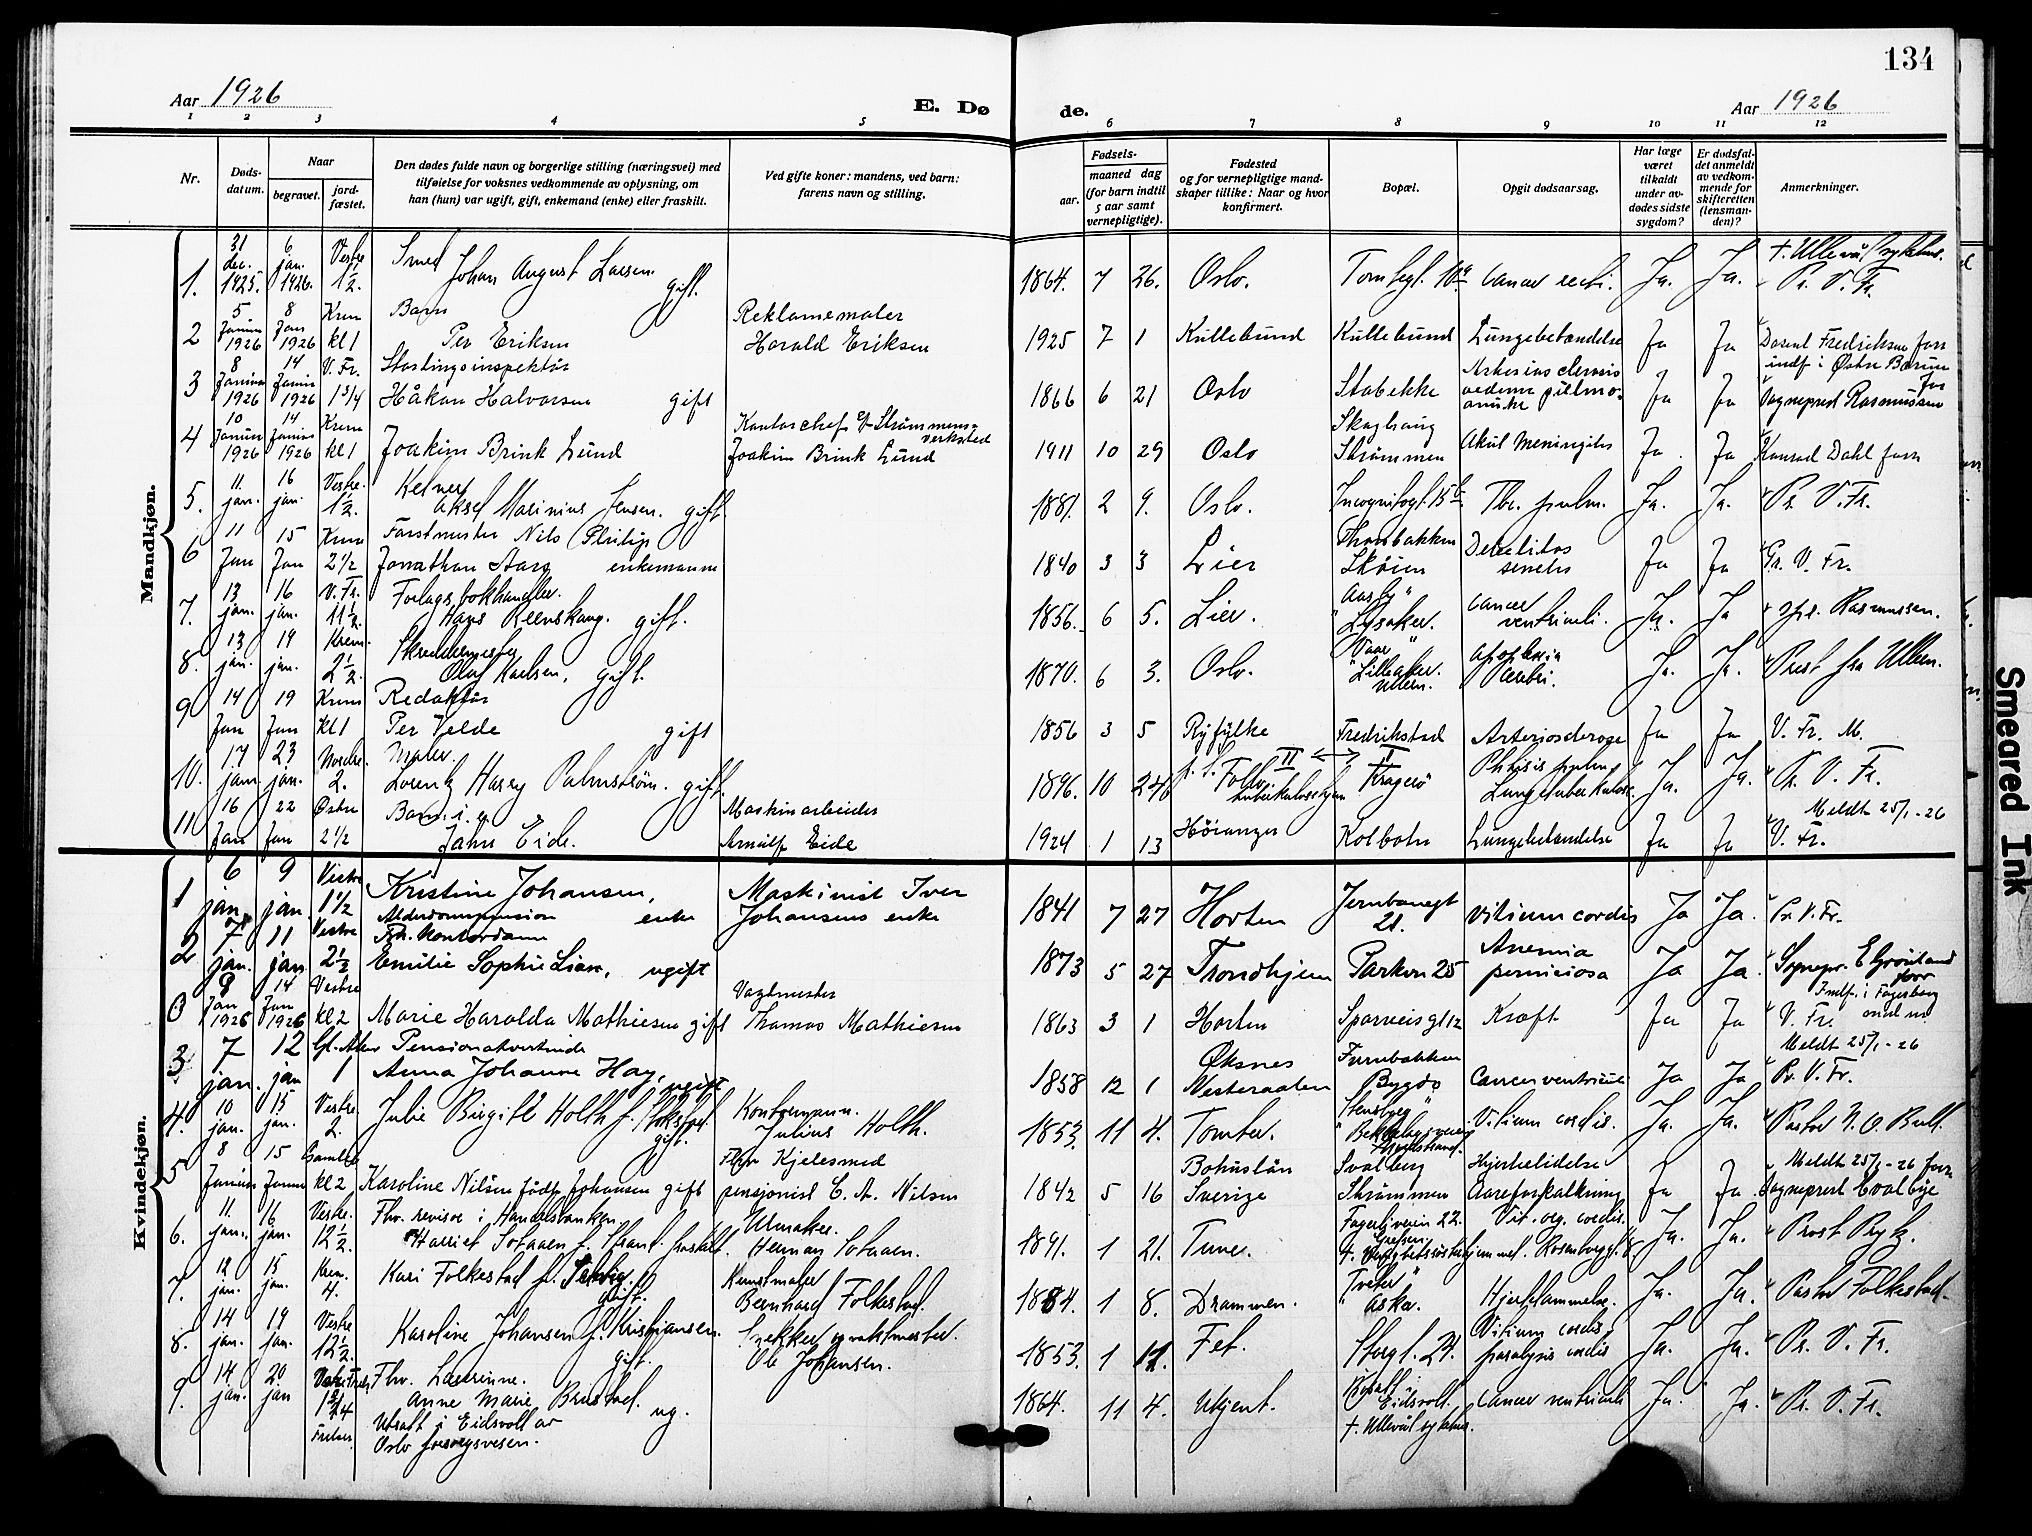 134
Aar 1926
E. Døde.
Aar 1926
1 2 3 4 5 6 7 8 9 10 11 12
Nr.
Døds-datum.
Naar
begravet.
jord-fæstet.
Den dødes fulde navn og borgerlige stilling (næringsvei) med
tilføielse for voksnes vedkommende av oplysning, om
han (hun) var ugift, gift, enkemand (enke) eller fraskilt.
Ved gifte koner: mandens, ved barn:
farens navn og stilling.
Fødsels-
aar.
maaned dag
(for barn indtil
5 aar samt
vernepligtige).
Fødested
og for vernepligtige mand-
skaper tillike: Naar og hvor
konfirmert.
Bopæl.
Opgit dødsaarsag.
Har læge
været
tilkaldt
under av-
dødes sidste
sygdom?
Er dødsfal-
det anmeldt
av vedkom-
mende for
skifteretten
(lensman-
den)?
Anmerkninger.
Mandkjøn.
1. 31 dec. 1925. 6 jan. 1926. Vestre 1½. Smed Johan August Larsen. gift. 1864. 7 26. Oslo. cancer recti. Ja. Ja. † Ullevål sykehus. Pr. V. Fr.
2 5 Januar 1926 8 Jan 1926 Krem kl 1 Barn Per Eriksen Reklamemaler Harald Eriksen 1925 7 1 Kullebund Kullebund Lungebetændelse Ja Ja Dosent Fredriksen forr indf i Østre Bærum
3 8 Januar 1926 14 Januar 1926 V. Fr. 1 3/4 Stortingsinspektør Håkon Halvorsen gift 1866 6 21 Oslo Stabekke Ja Ja Sogneprest Rasmussen forr
4 10 Januar 1926 14 Januar 1926 Krem kl 1 Joakim Brink Lund Kontorchef v/ Strømmens verksted Joakim Brink Lund 1911 10 29 Oslo Skaghaug Strømmen Akut Meningitis Ja Ja Konrad Dahl forr
5. 11. jan. 16 jan. Vestre. 1½. Kelner Aksel Marinius Jensen. gift. 1881. 2 9. Oslo. Incognitogt. 15 b. Tbc. pulm. Ja. Ja. Pr. V. Fr.
6 11 Jan 15 Jan Krem 2 1/2 Forstmester Nils Philip Jonathan Aars enkemann 1840 3 3 Lier Thorsbakken Skøien Debilitas senilis Ja Ja Pr. V. Fr.
7. 13 jan. 16 jan. V. Fr. 11½. Forlagsbokhandler. Hans Reenskaug. gift. 1856. 6 5. Lier. Lysaker. Cancer ventriculi. Ja. Ja Rasmussen.
8. 13 jan. 19 jan. Krem. 2½. Skreddermester Olaf Karlsen, gift. 1870. 6 3. Oslo. Lilleaker. Ullern. Apoplexia cerebri. Ja. Ja. Prest fra Ullern.
9 14 Jan 19 Jan Krem kl 1 Redaktør Per Velde gift 1856 3 5 Ryfylke Fredrikstad Arteriosclerose Ja Ja V. Fr. M.
10. 17 jan. 23 jan. Nordre. 2. Maler. Lorentz Harry Palmstrøm. gift. 1896. 10 24 II ↔ I Kragerø Phtisis pulm. Lungetuberkulose. Ja. Ja. Pr. V. Fr.
11 16 Jan 22 Jan Østre 2 1/2 Barn i.e. Jahn Eide. Maskinarbeider Arnulf Eide 1924 1 13 Høianger Kolbotn Lungebetændelse Ja Ja Meldt 25/1-26 V. Fr.
Kvindekjøn.
1 6 jan. 9 jan. Vestre 1 1/2 Kristine Johansen, Alderdomspension enke Maskinist Iver Johansens enke 1841 7 27 Horten Jernbanegt 21. Vitium cordis Ja Ja. Pr. V. Fr.
2 7 jan. 11 jan Vestre 2½ Fhv. Kontordame Emilie Sophie Lian, ugift 1873 5 27 Trondhjem Parkvn 25 Anemia perniciosa Ja Ja. Sognepr. E Grønland forr
0 9 Jan 1926 14 Jan 1926 Vestre kl 2 Marie Haralda Mathiesen gift Vagtmester Thomas Mathiesen 1863 3 1 Horten Sporveisgt 12 Kræft Ja Ja V. Fr. Indf. i Fagerborg Meldt 25/1-26
3 7 jan. 12 jan Gl. Aker 1 Pensionatvertinde Anna Johanne Hay, ugift 1858 12 1 Øksnes Vesteraalen Furubakken Bygdø Cancer ventriculi Ja Ja Pr. V. Fr.
4. 10 jan. 15 jan. Vestre. 2. Julie Birgitte Holth f. gift. Kontormann. Julius Holth. 1853. 11 4. Tomter. Vitium cordis. Ja. Ja. Pastor N. O. Bull.
5 8 Januar 15 Januar Gamle kl 2 Karoline Nilsen født Johansen gift Fhv Kjelesmed pensjonist C. A. Nilsen 1842 5 16 Bohuslän Sverige Svalberg Strømmen Hjertelidelse Aareforkalkning Ja Ja. Meldt 25/1-26 forr Sogneprest Coalbye
6. 11. jan. 16 jan. Vestre. 12½. Fhv. revisor i Handelsbanken Harriet Sotaaen f. Strand. fraskilt. Urmaker. Herman Sotaaen. 1891. 1 21. Tune. Fagerliveien 22. Grefsen. Vit. org. cordis. Ja. Ja. Prost Ryk.
7. 12 jan. 15 jan. Krem. 4. Kari Folkestad f. gift. Kunstmaler Bernhard Folkestad. 1884. 1 8. Drammen. Tveter Asker. Hjertelammelse. Ja. Ja. Pastor Folkestad.
8. 14 jan. 19 jan. Vestre 12½. Karoline Johansen f. Kristiansen. gift. Snekker og vaktmester. Ole Johansen. 1853. 1 12. Fet. Storgt. 24. Vitium cordis, paralysis cordis Ja. Ja. Pr. V. Fr.
9. 14 jan. 20 jan Frelser. Fhv. Lærerinne. Anne Marie Brustad. ug. Utsatt i Eidsvoll av Oslo forsorgsvesen. 1864. 11 4. Ukjent. Bosatt i Eidsvoll. † Ullevål sykehus. cancer ventriculi Ja. Ja. Pr. V. Fr.
Smeared Ink